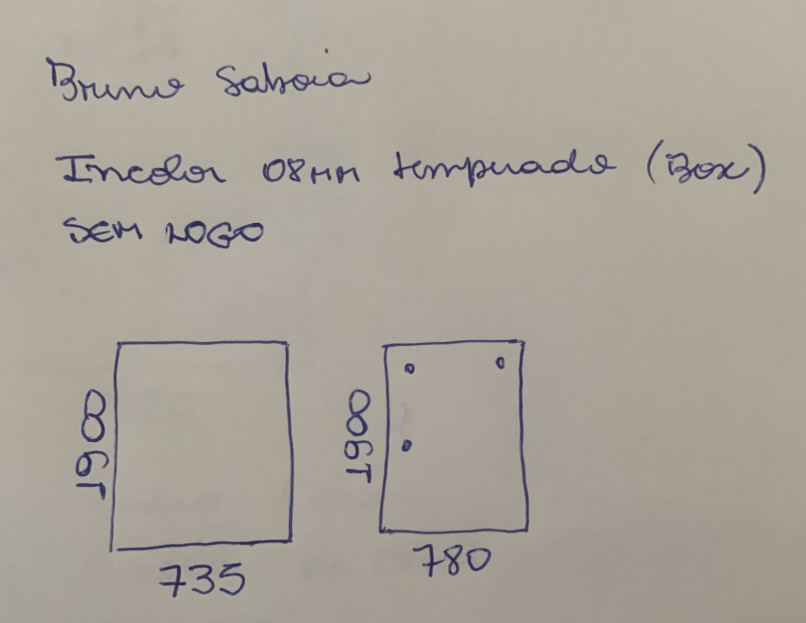 Bruno Saboia
Incolor 08mm temperado (Box)
SEM LOGO
1900
735
1900
780